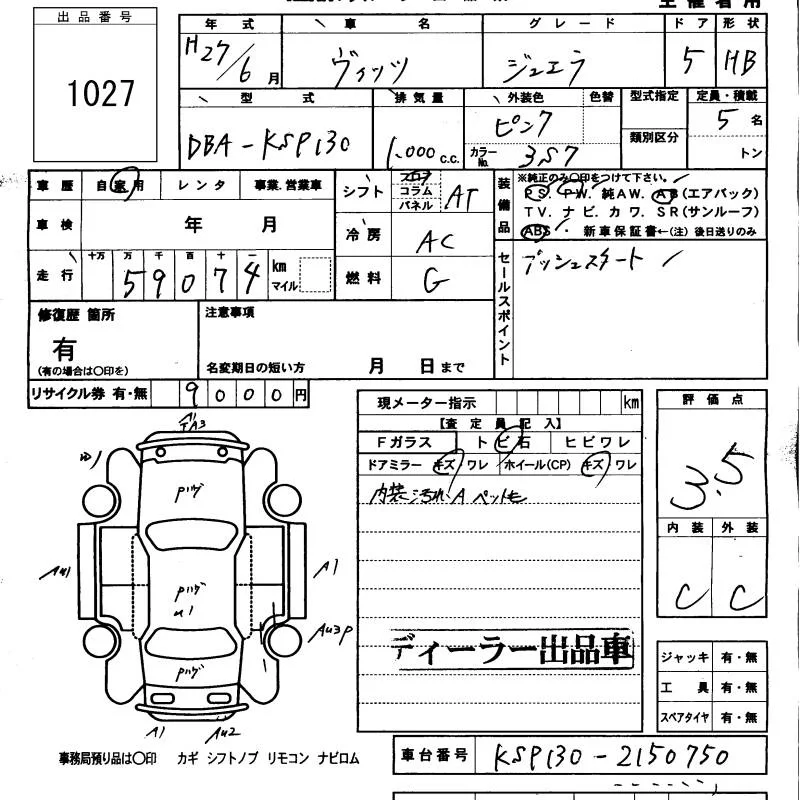 主催者用
出品番号
1027
年式 車名 グレード ドア 形状
H27/6月 ヴィッツ ジュエラ 5 HB
型式 排気量 外装色 色替 型式指定 定員・積載
DBA-KSP130 1.000 c.c. ピンク カラーNo. 3S7 類別区分 5名 トン
車歴 自家用 レンタ 事業.営業車
車検 年 月
走行 十万 万 千 百 十 一
59074 km マイル
シフト フロア コラム パネル AT
冷房 AC
燃料 G
装備品
※純正のみ○印をつけて下さい。
PS. PW. 純AW. AB(エアバック)
TV. ナビ. カワ. SR(サンルーフ)
ABS. 新車保証書←(注) 後日送りのみ
セールスポイント
プッシュスタート
修復歴 箇所
有
(有の場合は○印を)
注意事項
名変期日の短い方 月 日まで
リサイクル券 有・無 9000円
現メーター指示 km
【査定員記入】
Fガラス トビ石 ヒビワレ
ドアミラー キズ・ワレ ホイール(CP) キズ・ワレ
内装汚れ A ペット毛
ディーラー出品車
評価点
3.5
内装 外装
C C
ジャッキ 有・無
工具 有・無
スペアタイヤ 有・無
A3
Pハゲ
A1
Pハゲ
U1
AU3P
Pハゲ
A1 AU2
事務局預り品は○印 カギ シフトノブ リモコン ナビロム
車台番号 KSP130-2150750